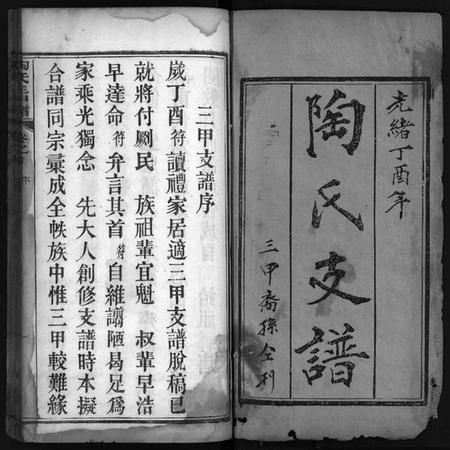 光緒丁酉年
陶氏支譜
三甲裔孫仝刊
三甲支譜序
歲丁酉符讀禮家居適三甲支譜脫稿已
就將付劂民 族祖輩宜魁 叔輩早浩
早達命符弁言其首符自維譾陋曷足爲
家乘光獨念 先大人創修支譜時本擬
合譜同宗彙成全帙族中惟三甲較難緣
陶氏三甲譜
序